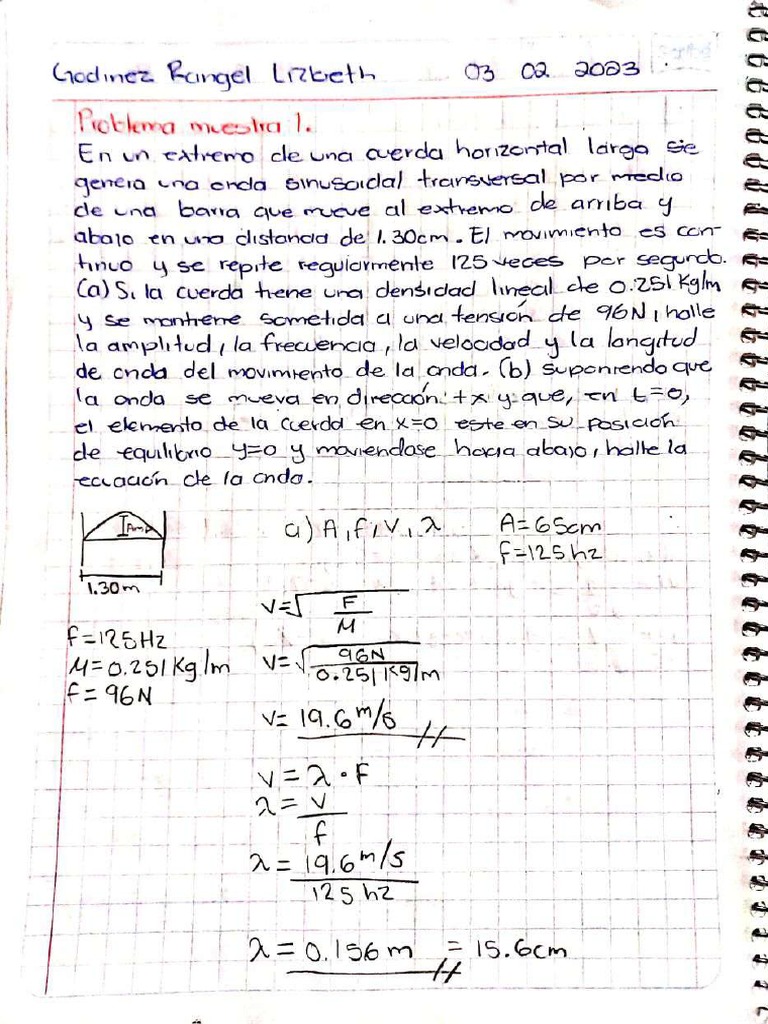 Godinez Rangel Lizbeth 03 02 2023
Problema muestra 1.
En un extremo de una cuerda horizontal larga se
genera una onda sinusoidal transversal por medio
de una barra que mueve al extremo de arriba y
abajo en una distancia de 1.30cm. El movimiento es con-
tinuo y se repite regularmente 125 veces por segundo.
(a) Si la cuerda tiene una densidad lineal de 0.251 Kg/m
y se mantiene sometida a una tensión de 96N, halle
la amplitud, la frecuencia, la velocidad y la longitud
de onda del movimiento de la onda. (b) suponiendo que
la onda se mueva en dirección +x y que, en t=0,
el elemento de la cuerda en x=0 este en su posición
de equilibrio y=0 y moviendose hacia abajo, halle la
ecuación de la onda.
a) A, f, v, λ
A=65cm
f=125hz
1.30m
f=125Hz
M=0.251 Kg/m
f=96N
v=√F/M
v=√96N/0.251 Kg/m
v= 19.6 m/s
v = λ · F
λ = v/f
λ = 19.6 m/s / 125 hz
λ = 0.156 m = 15.6cm